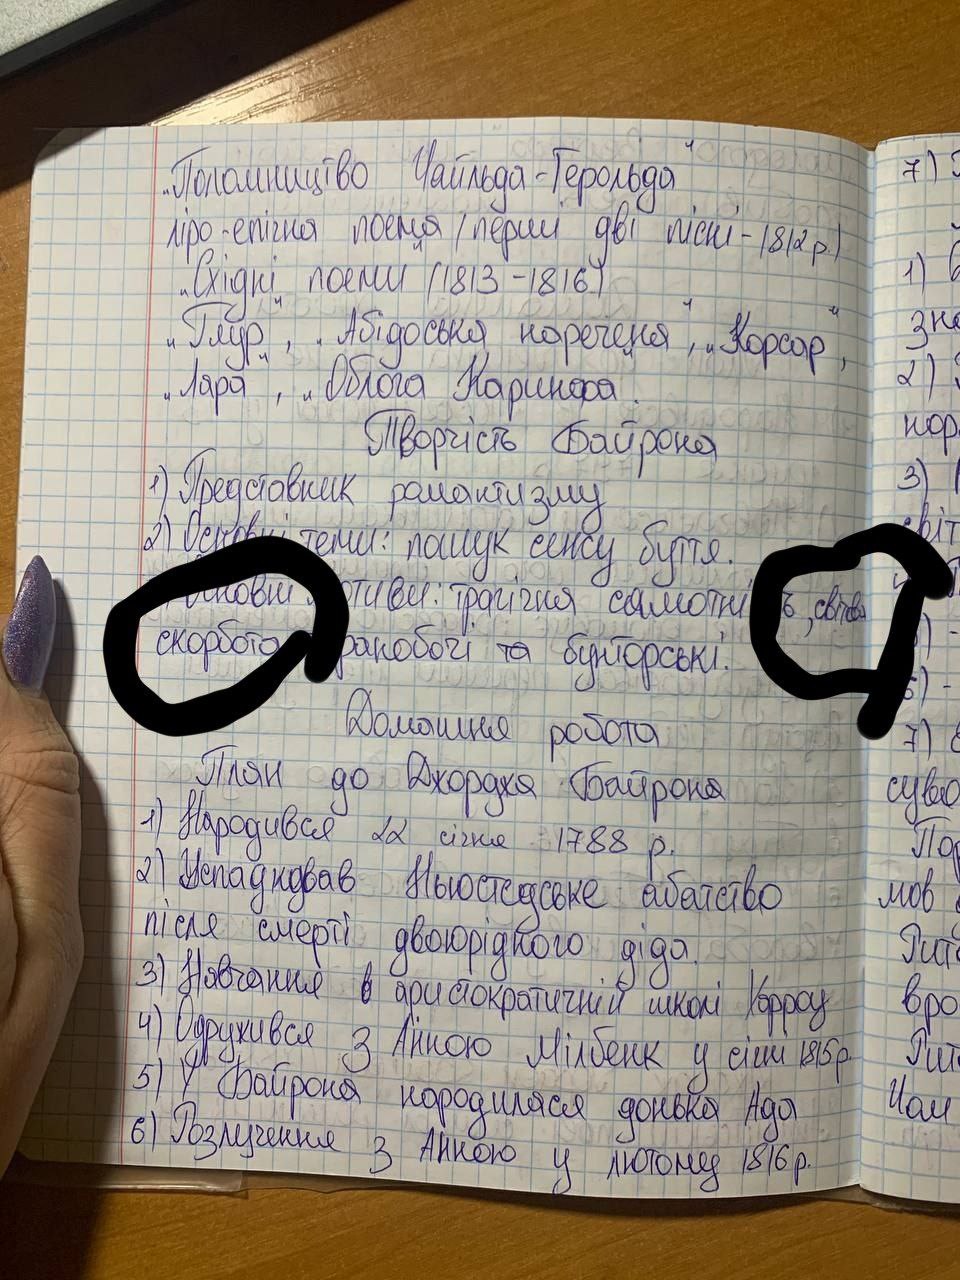 „Паломництво Чайльда-Герольда"
ліро-епічна поема (перші дві пісні - 1812 р.)
„Східні" поеми (1813 - 1816)
„Гяур", „Абідоська наречена", „Корсар",
„Лара", „Облога Коринфа.
Творчість Байрона
1) Представник романтизму
2) Основні теми: пошук сенсу буття.
трагічна світова
скорбота та бунтарські.
Домашня робота
План до Джорджа Байрона
1) Народився 22 січня 1788 р.
2) Успадкував Ньюстедське абатство
після смерті двоюрідного діда.
3) Навчання в аристократичній школі Харроу
4) Одружився з Анною Мілбенк у січні 1815 р.
5) У Байрона народилася донька Ада
6) Розлучення з Анною у лютому 1816 р.
7)
1)
2)
3)
7)
мов